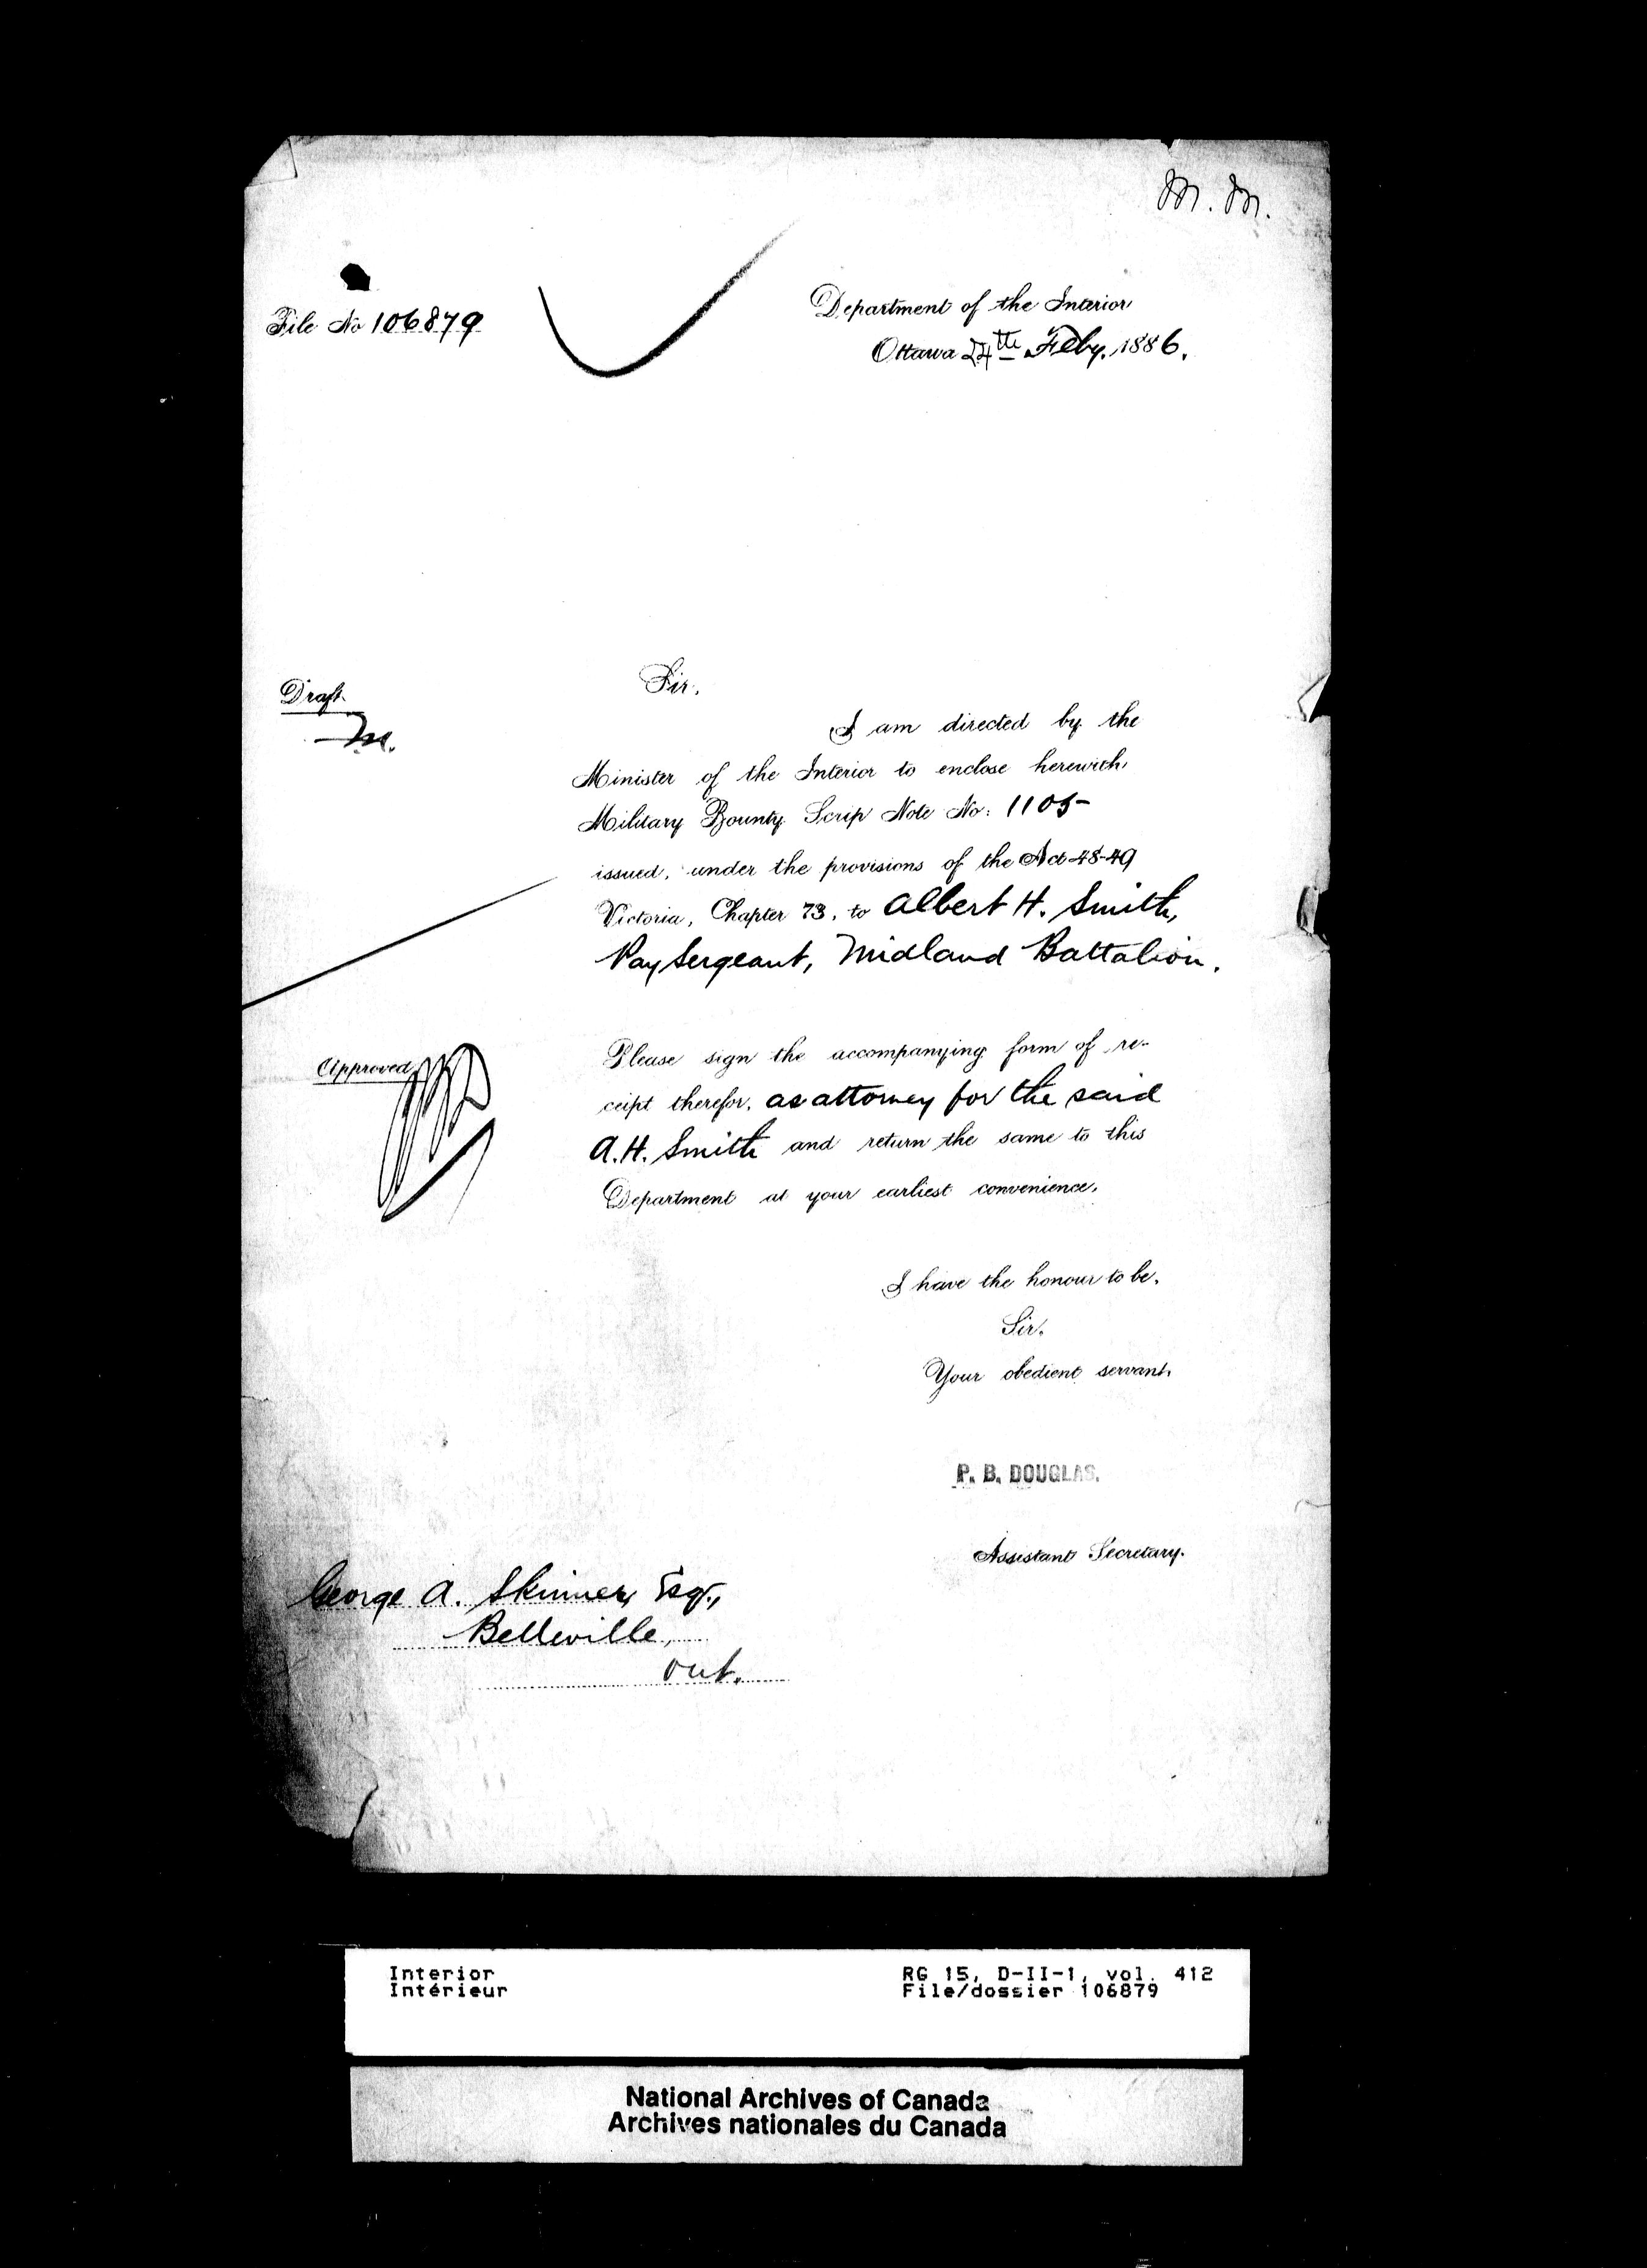 M. M.
File No 106879
Department of the Interior
Ottawa 24th Feby. 1886.
Sir,
Draft
M.
I am directed by the
Minister of the Interior to enclose herewith,
Military Bounty Scrip Note No: 1105
issued, under the provisions of the Act 48-49
Victoria, Chapter 73, to Albert H. Smith,
Pay Sergeant, Midland Battalion.
Approved
Please sign the accompanying form of re-
ceipt therefor, as attorney for the said
A. H. Smith and return the same to this
Department at your earliest convenience.
I have the honour to be,
Sir,
Your obedient servant,
P. B. DOUGLAS.
Assistant Secretary.
George A. Skinner, Esq.,
Belleville,
Ont.
Interior
Intérieur
RG 15, D-II-1, vol. 412
File/dossier 106879
National Archives of Canada
Archives nationales du Canada